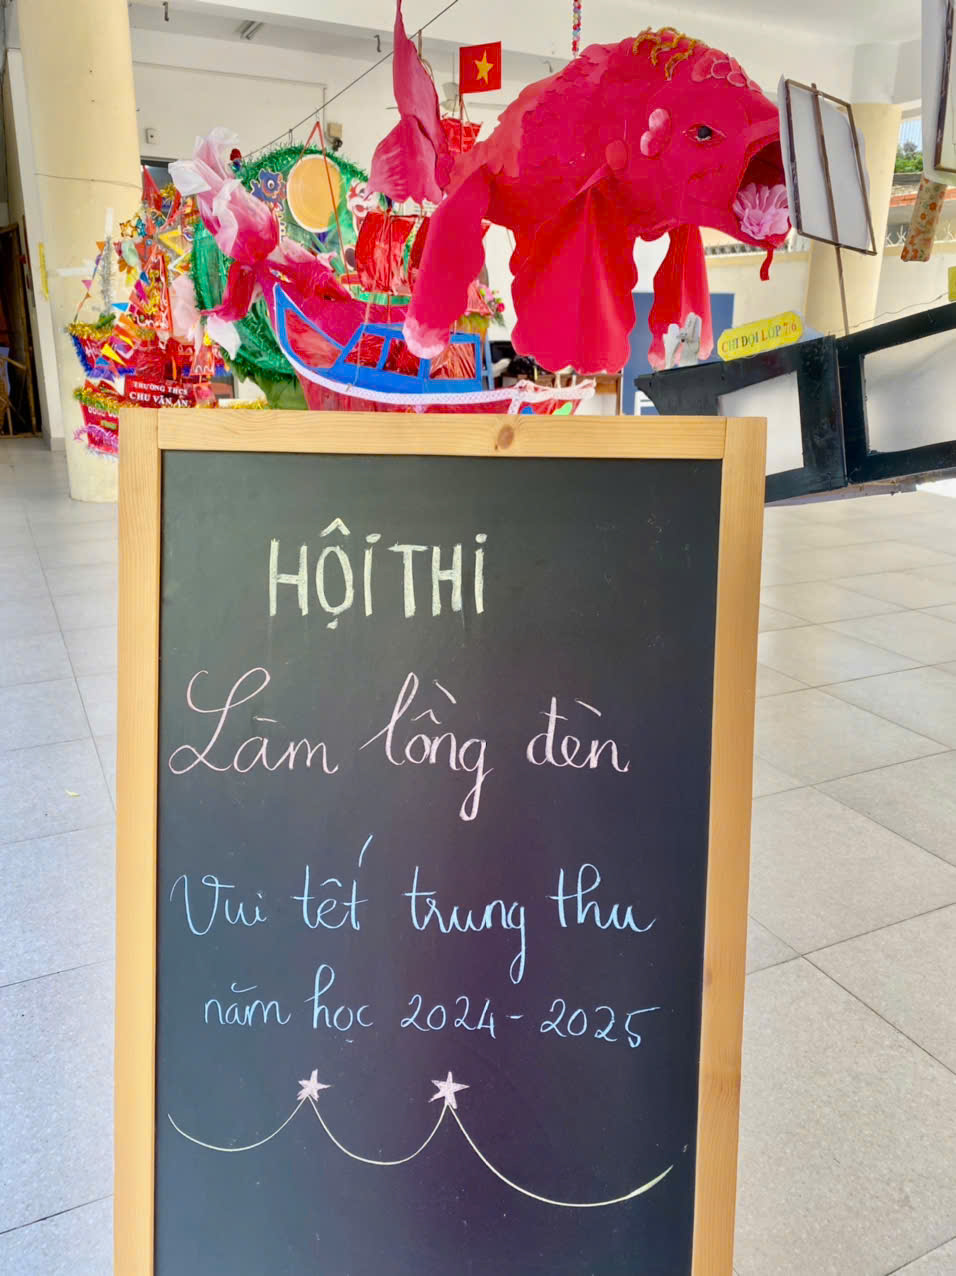 CHI ĐỘI LỚP 7/6
TRƯỜNG THCS
CHU VĂN AN
HỘI THI
Làm lồng đèn
Vui tết trung thu
năm học 2024 - 2025